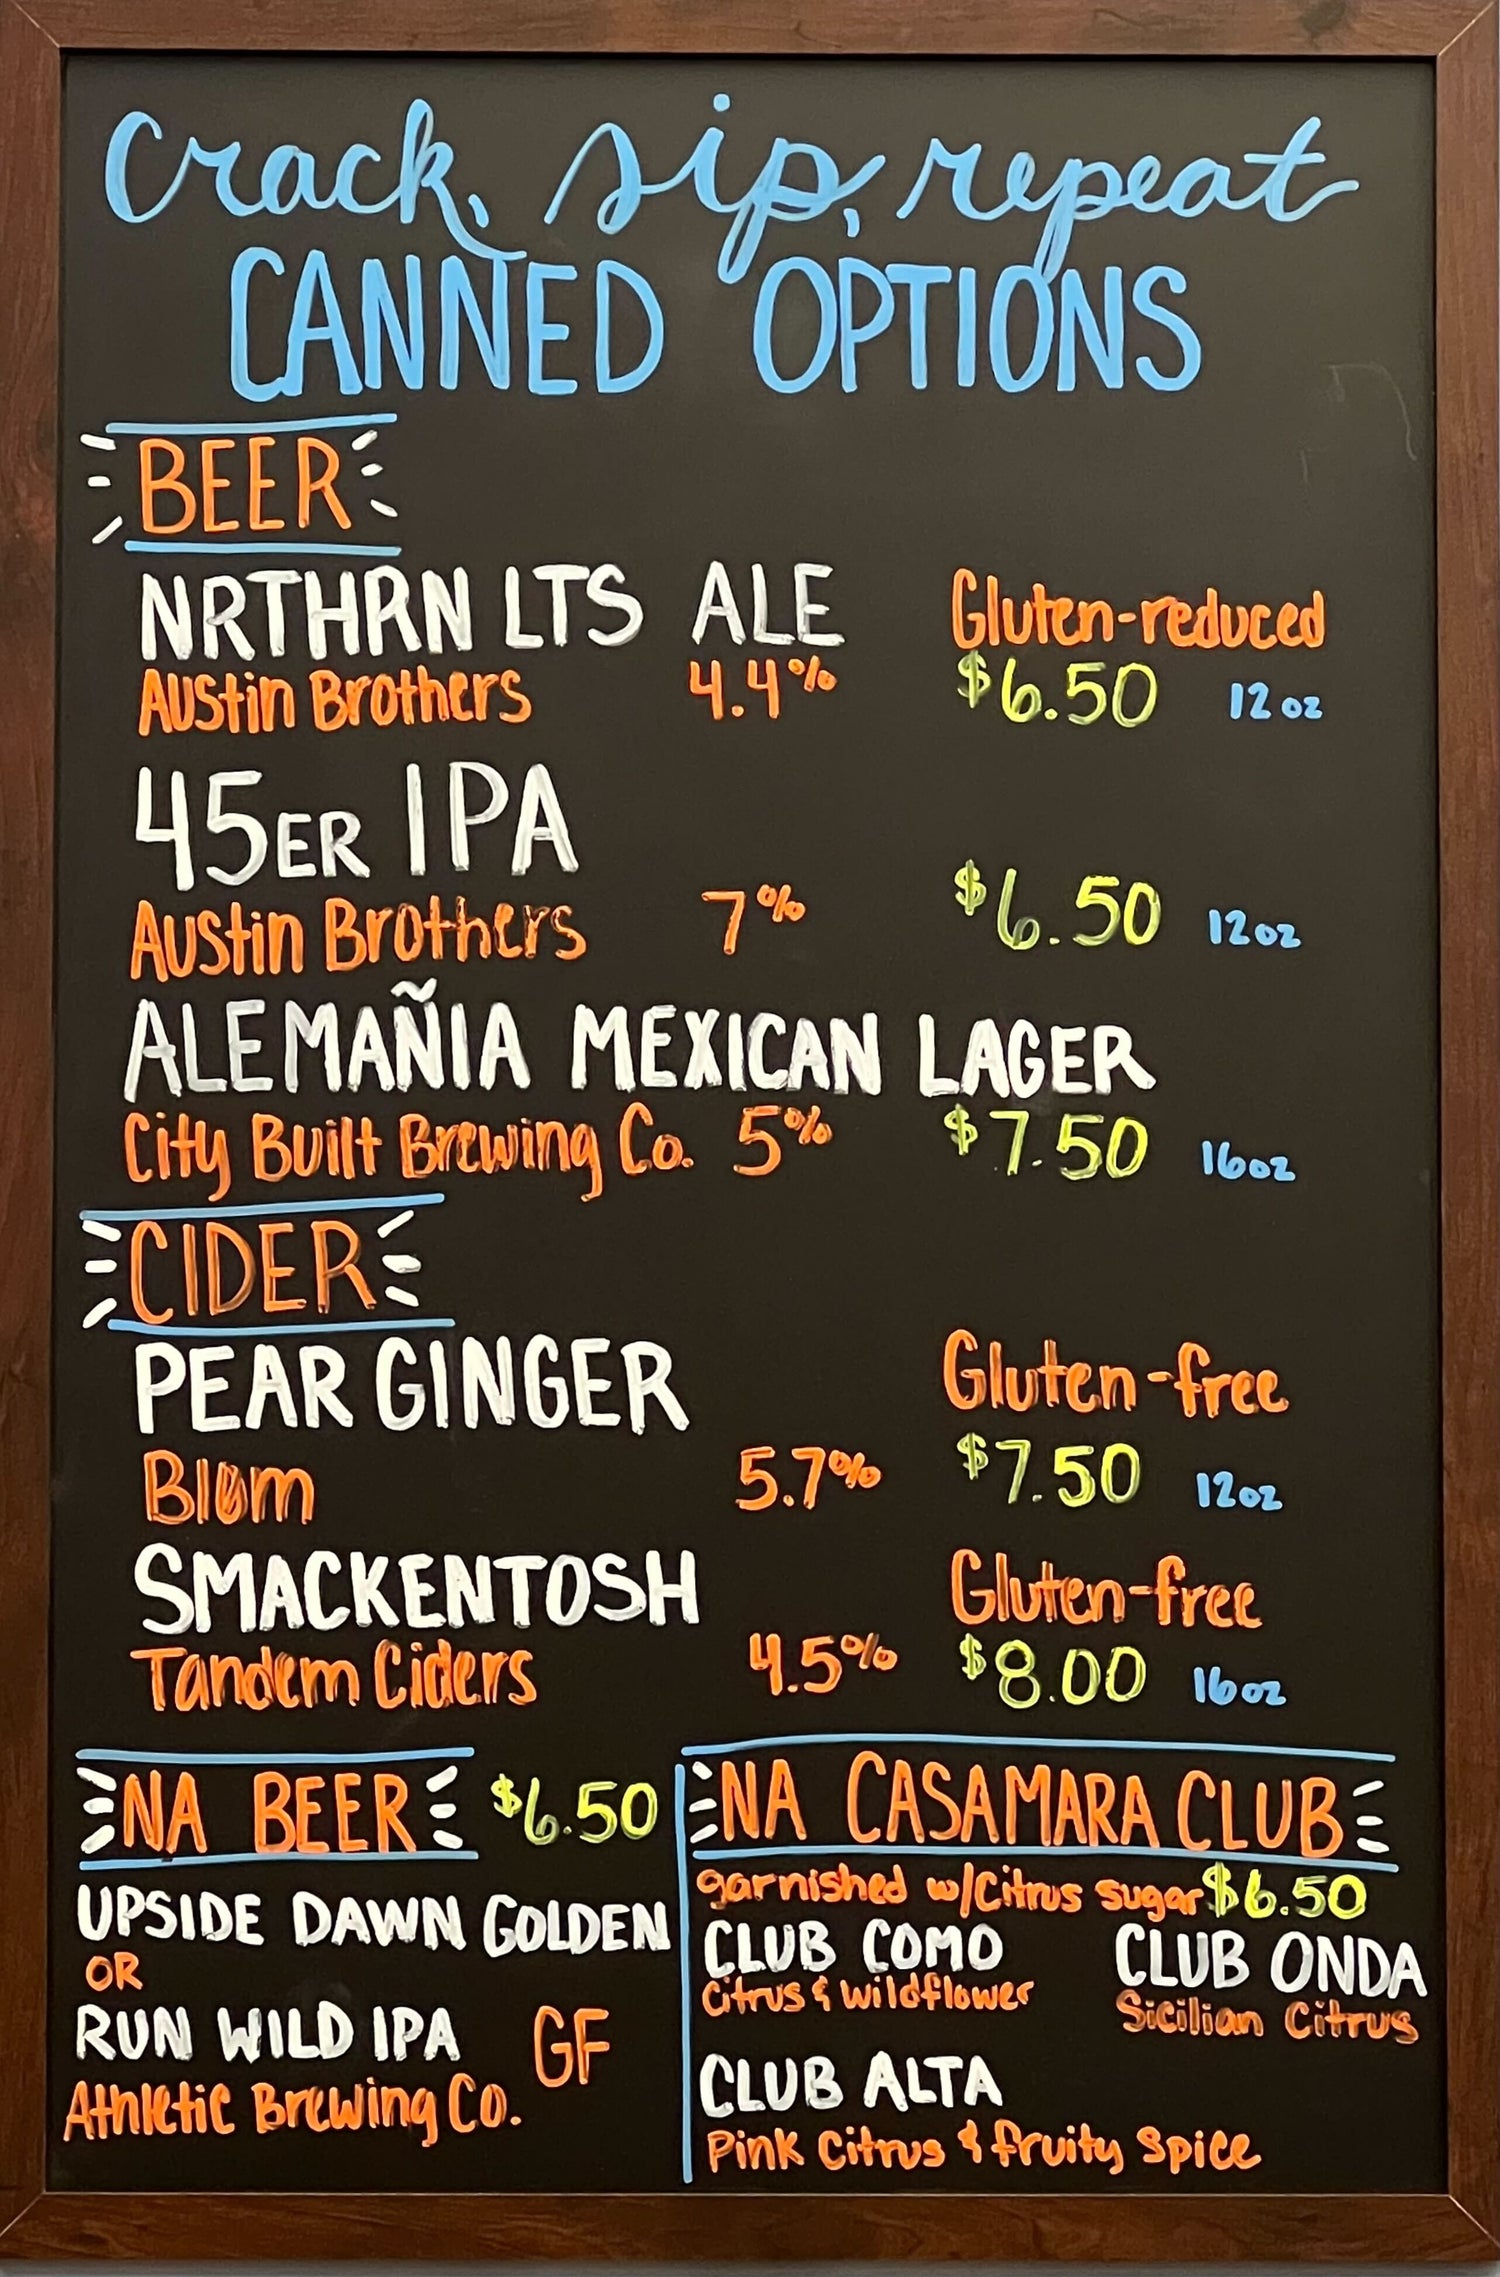 Crack, sip, repeat
CANNED OPTIONS
BEER
NRTHRN LTS ALE Gluten-reduced
Austin Brothers 4.4% $6.50 12 oz
45ER IPA
Austin Brothers 7% $6.50 12oz
ALEMAÑIA MEXICAN LAGER
City Built Brewing Co. 5% $7.50 16oz
CIDER
PEAR GINGER Gluten-free
Bløm 5.7% $7.50 12oz
SMACKENTOSH Gluten-free
Tandem Ciders 4.5% $8.00 16oz
NA BEER $6.50
UPSIDE DAWN GOLDEN
OR
RUN WILD IPA GF
Athletic Brewing Co.
NA CASAMARA CLUB
garnished w/Citrus sugar $6.50
CLUB COMO CLUB ONDA
Citrus & Wildflower Sicilian Citrus
CLUB ALTA
Pink Citrus & fruity Spice